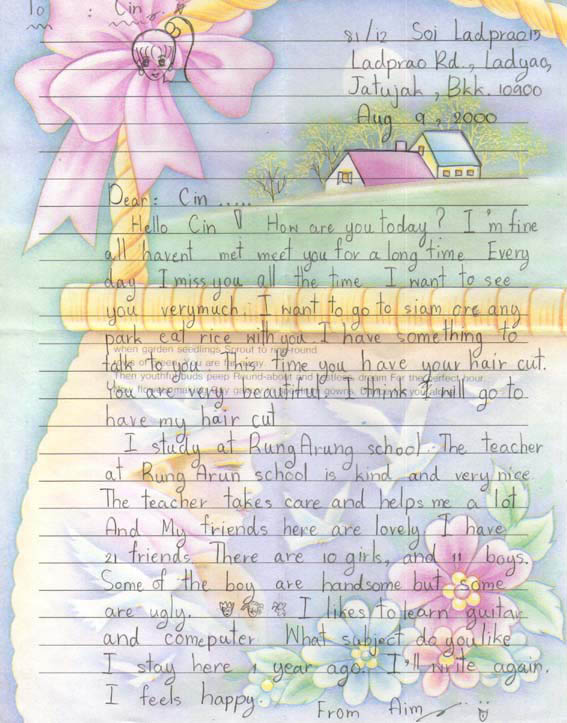 To : Cin
81/12 Soi Ladprao15
Ladprao Rd., Ladyao,
Jatujak, Bkk. 10900
Aug 9, 2000
Dear: Cin .....
Hello Cin ! How are you today? I'm fine
all havent met meet you for a long time Every
day I miss you all the time I want to see
you verymuch. I want to go to siam ore any
park eat rice with you. I have something to
when garden seedlings Sprout to ring-round
talk to you This time you have your hair cut.
Then youthful buds peep Round-about and dream For the perfect hour
You are very beautiful I think I will go to
have my hair cut
I study at RungArung school. The teacher
at Rung Arun school is kind and very nice
The teacher takes care and helps me a lot
And My friends here are lovely I have
21 friends There are 10 girls, and 11 boys.
Some of the boy are handsome but some
are ugly. I likes to learn guitar
and comeputer What subject do you like
I stay here 1 year ago. I'll write again.
I feels happy.
From Aim